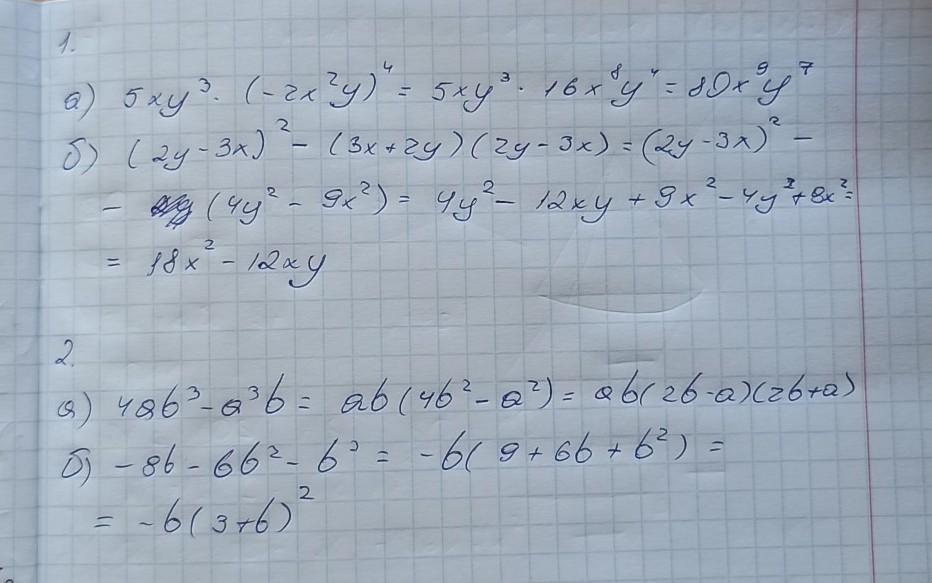 1.
а) 5xy³ · (-2x²y)⁴ = 5xy³ · 16x⁸y⁴ = 80x⁹y⁷
б) (2y - 3x)² - (3x + 2y)(2y - 3x) = (2y - 3x)² -
- (4y² - 9x²) = 4y² - 12xy + 9x² - 4y² + 9x² =
= 18x² - 12xy
2.
а) 4ab³ - a³b = ab(4b² - a²) = ab(2b - a)(2b + a)
б) -9b - 6b² - b³ = -b(9 + 6b + b²) =
= -b(3 + b)²